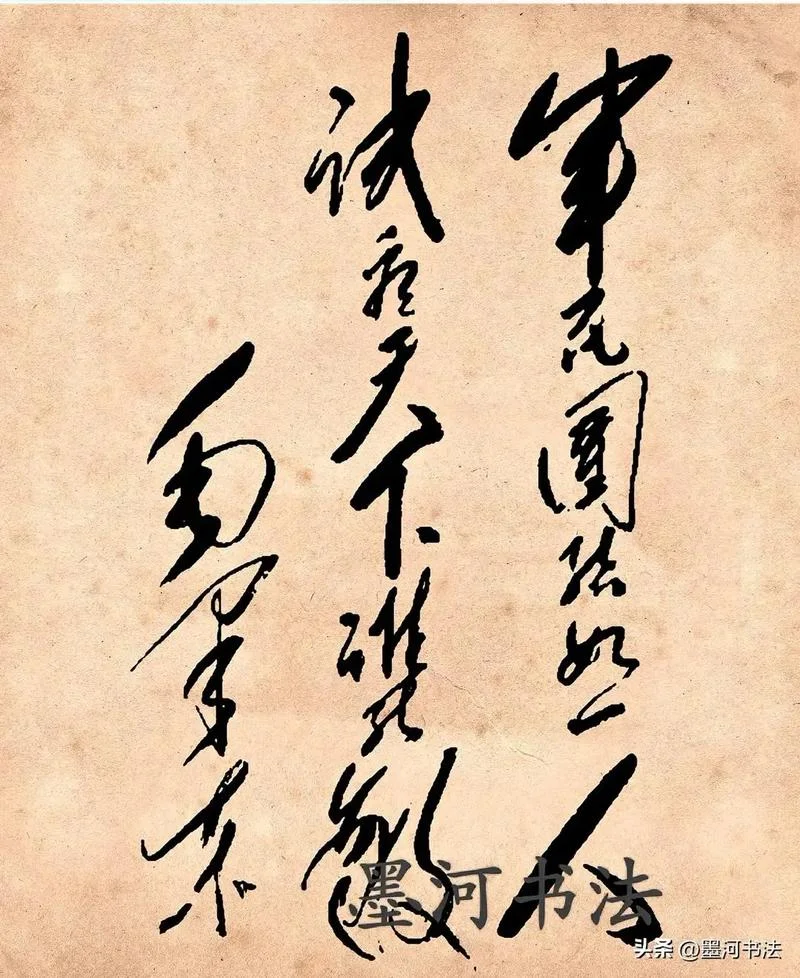 军民团结如一人
试看天下谁能敌
毛泽东
墨河书法
头条 @墨河书法